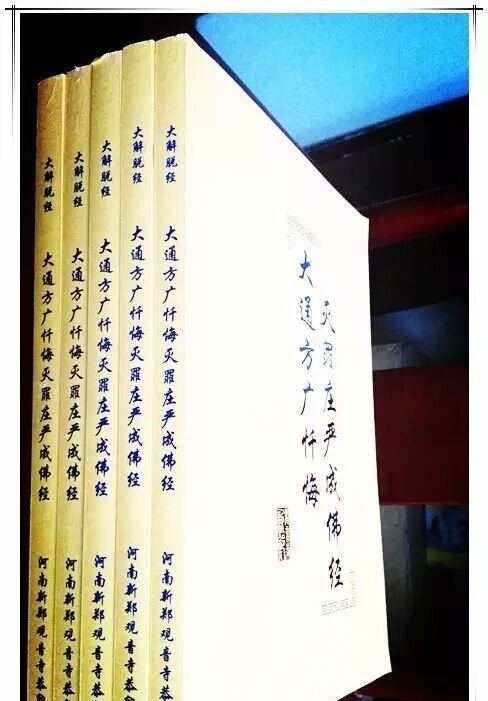 大解脱经 大通方广忏悔灭罪庄严成佛经 河南新郑观音寺恭
大解脱经 大通方广忏悔灭罪庄严成佛经 河南新郑观音寺恭
大解脱经 大通方广忏悔灭罪庄严成佛经 河南新郑观音寺恭
大解脱经 大通方广忏悔灭罪庄严成佛经 河南新郑观音寺恭
大解脱经 大通方广忏悔灭罪庄严成佛经 河南新郑观音寺恭
大通方广忏悔
灭罪庄严成佛经